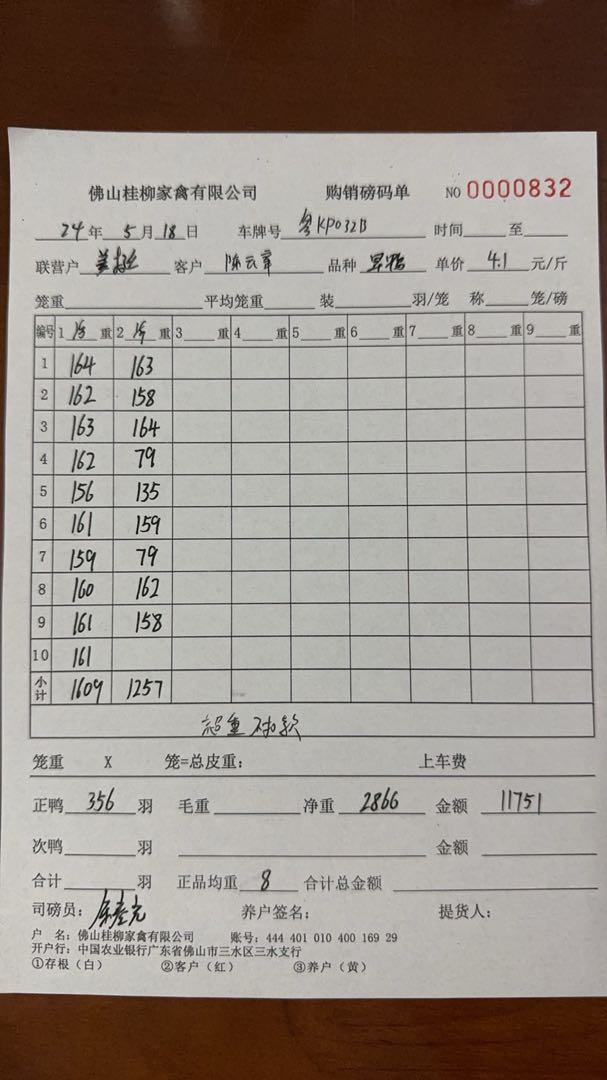 佛山桂柳家禽有限公司 购销磅码单 NO 0000832
24年 5月18日 车牌号 粤KP032B 时间 至
联营户 客户 陈云章 品种 单价 4.1 元/斤
笼重 平均笼重 装 羽/笼 称 笼/磅
编号 1 净 重 2 净 重 3 重 4 重 5 重 6 重 7 重 8 重 9 重
1 164 163
2 162 158
3 163 164
4 162 79
5 156 135
6 161 159
7 159 79
8 160 162
9 161 158
10 161
小计 1609 1257
超重不扣款
笼重 X 笼=总皮重: 上车费
正鸭 356 羽 毛重 净重 2866 金额 11751
次鸭 羽 金额
合计 羽 正品均重 8 合计总金额
司磅员: 养户签名: 提货人:
户 名: 佛山桂柳家禽有限公司 账号: 444 401 010 400 169 29
开户行: 中国农业银行广东省佛山市三水区三水支行
①存根(白) ②客户(红) ③养户(黄)